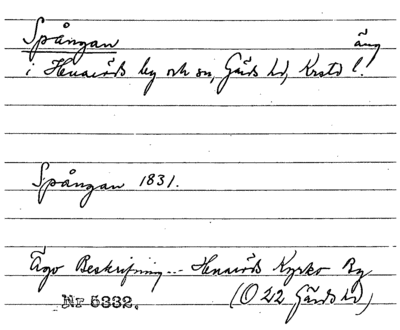 Spångan äng
i Huaröds by och sn, Gärds hd, Krstd l.
Spångan 1831.
Ägo Beskrifning... Huaröds Kyrko By
Nr 5332. (O 22 Gärds hd)